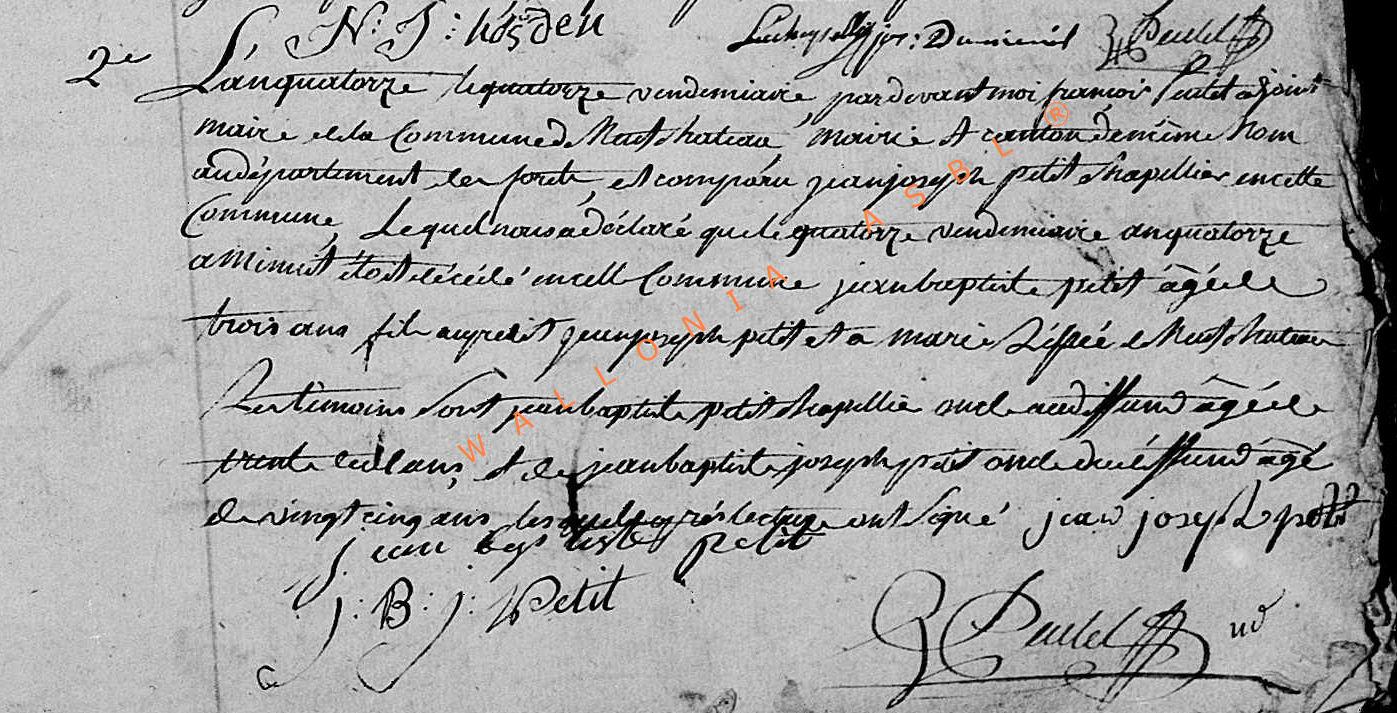 N: J: hosden
2e
L'an quatorze le quatorze vendemiaire pardevant moi francois adjoint
maire de la Commune de Neufchateau, mairie et canton de meme Nom
au département des forets, est comparu jean joseph petit chapellier en cette
Commune, Lequel nous a déclaré que le quatorze vendemiaire an quatorze
a Minuit étoit décédé en cette Commune jean baptiste petit âgé de
trois ans fils du jean joseph petit et a marie de Neufchateau
Les témoins sont jean baptiste petit chapellier oncle au deffunt âgé de
trente ans, et de jean baptiste joseph petit oncle du deffunt âgé
de vingt cinq ans, lesquels après lecture ont signé jean joseph petit
jean baptiste petit
J: B: J: Petit
WALLONIA ASBL ®